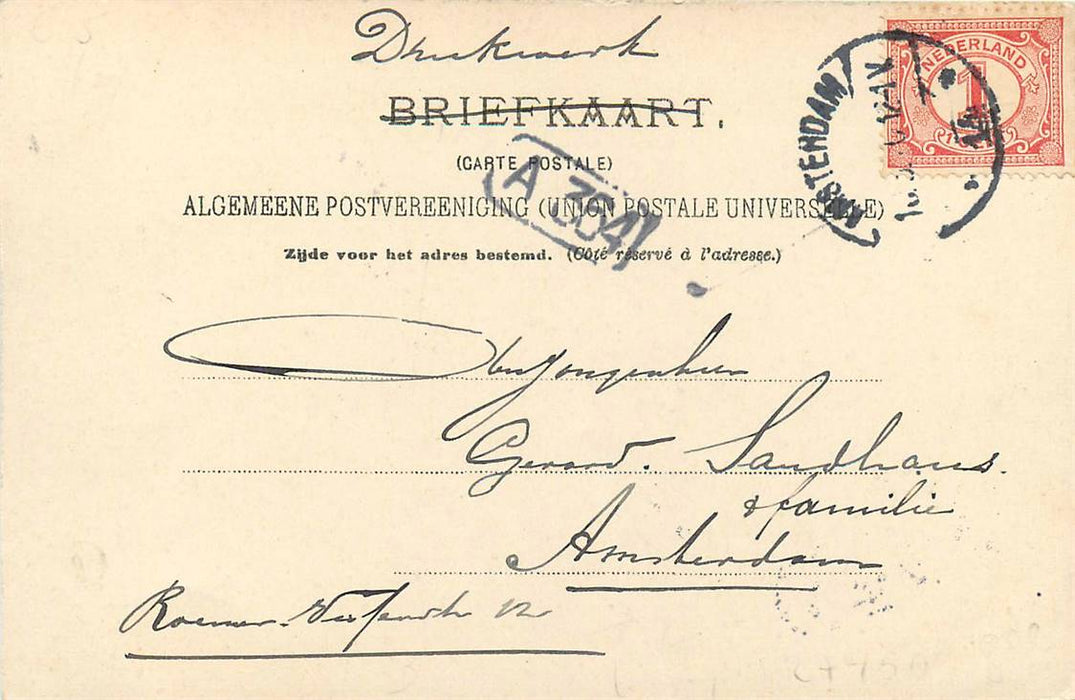 Drukwerk
BRIEFKAART.
(CARTE POSTALE)
ALGEMEENE POSTVEREENIGING (UNION POSTALE UNIVERSELLE)
Zijde voor het adres bestemd. (Côté réservé à l'adresse.)
NEDERLAND
1
AMSTERDAM
A 364
Jongenheer
Gerard. Sandhaus.
& familie
Amsterdam
Roemer-